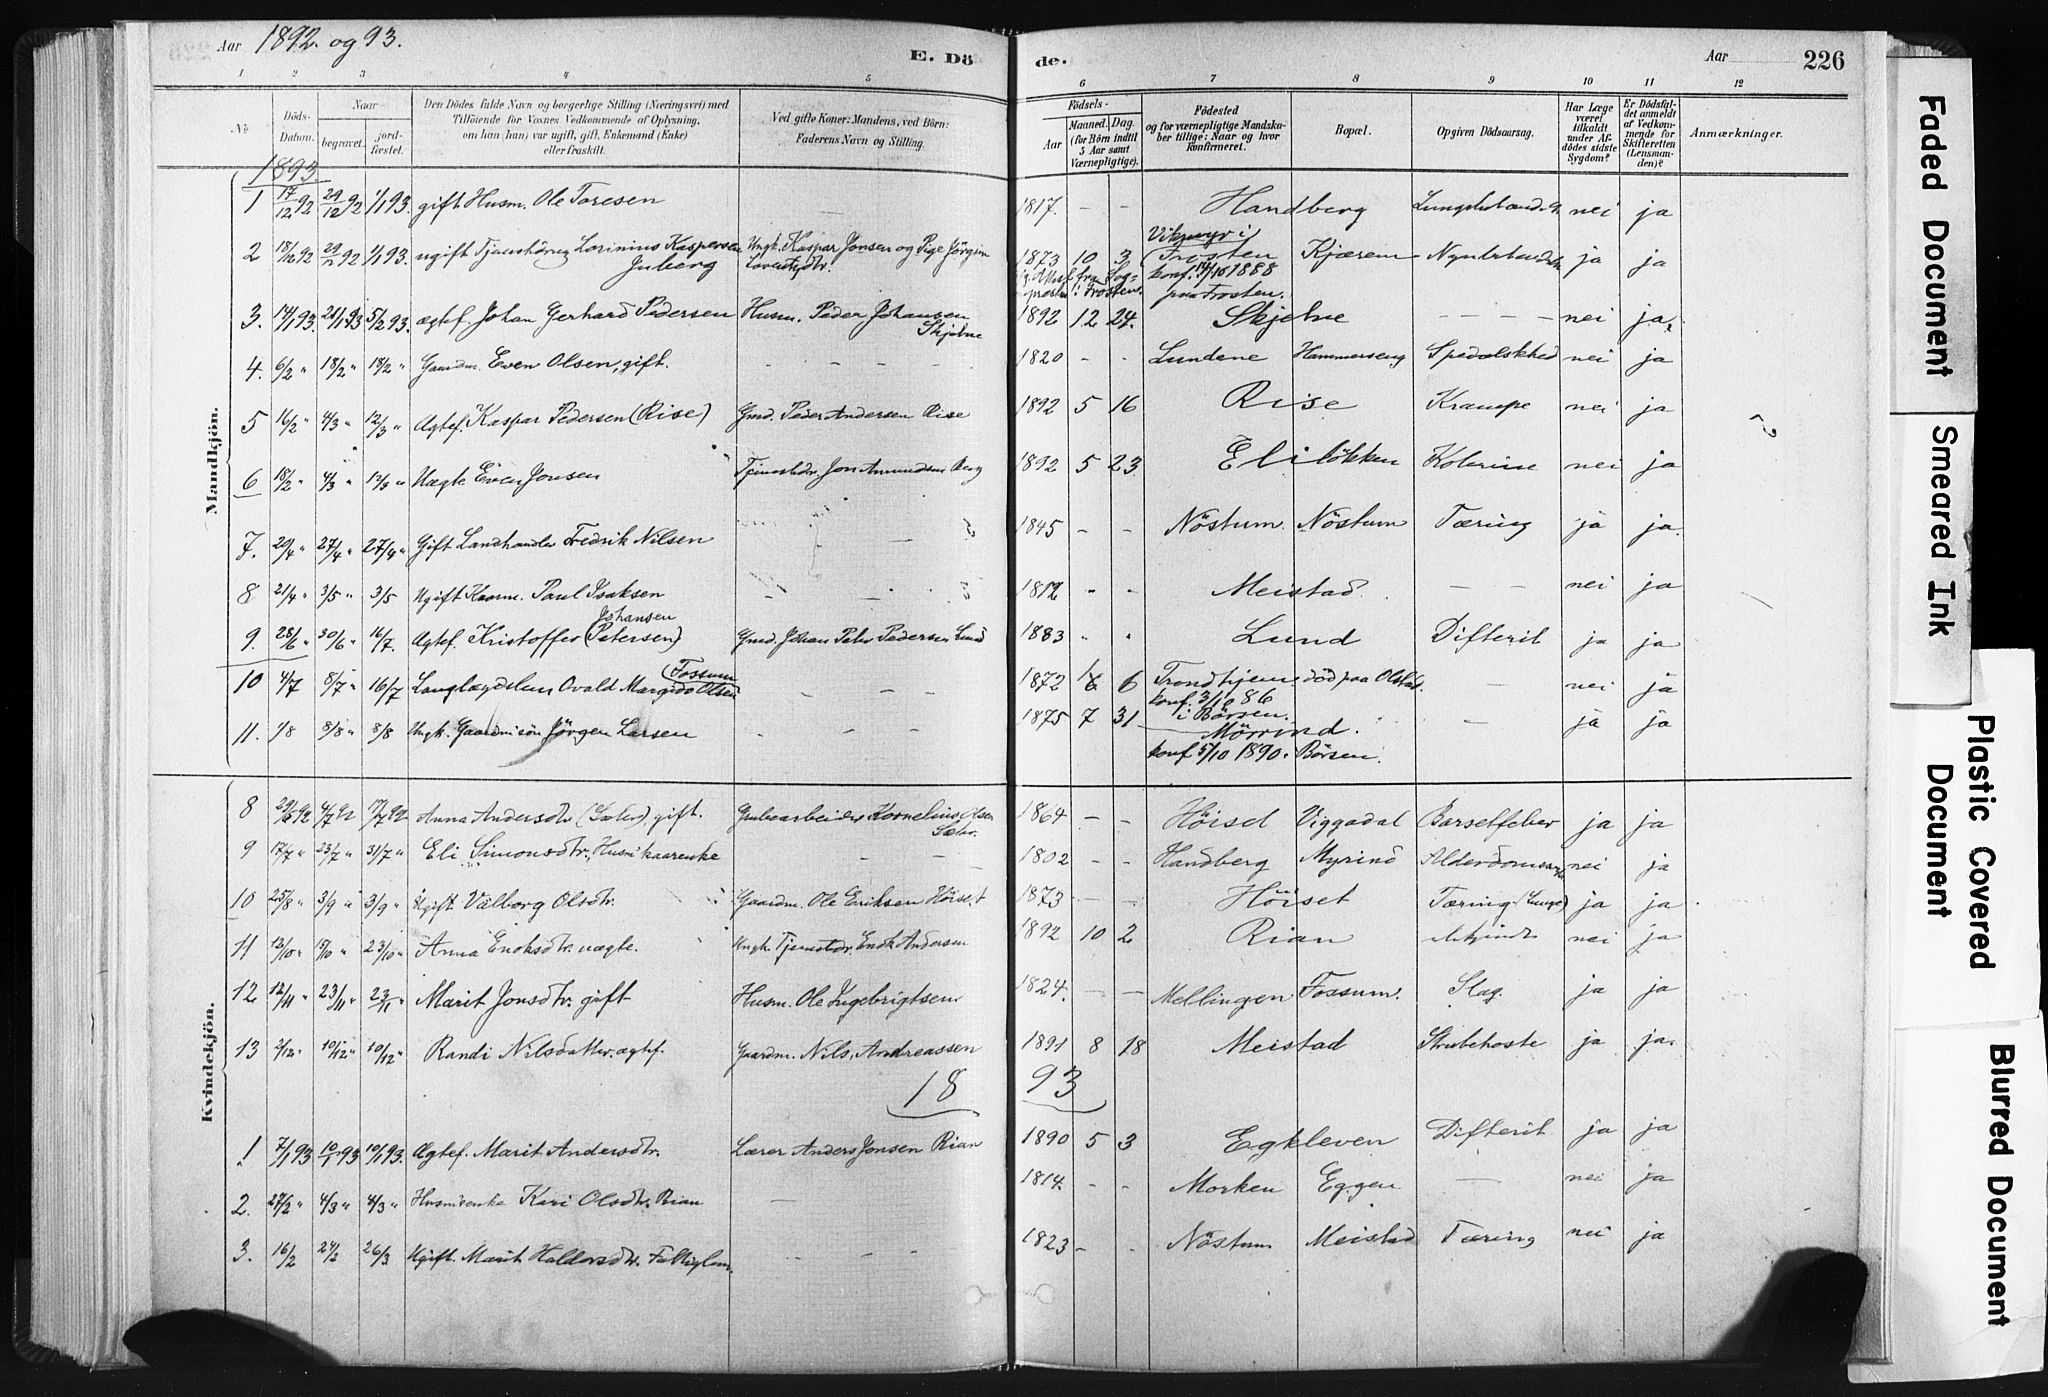 Aar 1892. og 93.
E. Dö
de.
Aar
226
1 2 3 4 5
6 7 8 9 10 11 12
No
Döds-Datum.
Naar
begravet.
jord-fæstet.
Den Dödes fulde Navn og borgerlige Stilling (Næringsvei) med
Tilföiende for Voxnes Vedkommende af Oplysning,
om han (hun) var ugift, gift, Enkemand (Enke)
eller fraskilt.
Ved gifte Koner: Mandens, ved Börn:
Faderens Navn og Stilling.
Födsels-
Aar
Maaned. Dag.
(for Börn indtil
5 Aar samt
Værnepligtige).
Födested
og for værnepligtige Mandska-
ber tillige: Naar og hvor
konfirmeret.
Bopæl.
Opgiven Dödsaarsag.
Har Læge
været
tilkaldt
under Af-
dödes sidste
Sygdom?
Er Dödsfal-
det anmeldt
af Vedkom-
mende for
Skifteretten
(Lensman-
den)?
Anmærkninger.
Mandkjön.
1893.
1 17/12 92 29/12 92 1/1 93. gift Husm. Ole Toresen 1817. - - Handberg nei ja
2 18/12 92 29/12 92 1/1 93. ugift Lorinius Kaspersen Juberg Ungk. Kaspar Jonsen og Pige 1873 10 3 Frosten konf. 1888 paa Frosten. Kjærem ja ja
3. 14/1 93. 5/2 93. ægtef. Johan Gerhard Pedersen Husm. Peder Johansen Skjelne 1892 12 24. Skjelne - - - - nei ja
4. 6/2 " 18/2 " 18/2 " Gaardm. Even Olsen, gift. - - 1820 - - Lundene Hammerseng Spedalskhed nei ja
5 16/2 " 4/3 " 12/3 " Ægtef. Kaspar Pedersen (Rise) Gmd. Peder Andersen Rise 1892 5 16 Rise Krampe nei ja
6 18/2 " 4/3 " 12/3 " Uægte Even Jonsen Jon Amundsen Berg 1892 5 23 Eliløkken Kolerine nei ja
7. 20/4 " 27/4 " 27/4 " Gift Landhandler Fredrik Nilsen 1845 - - Nöstum Nöstum Tæring ja ja.
8 21/4 " 3/5 " 3/5 Ugift Paul Isaksen - - Meistad. - - nei ja
9. 28/6 " 30/6 " 16/7. Ægtef. Kristoffer (Petersen) Johansen Gmd. Johan Peter Pedersen Lund 1883 " " Lund Difterit ja ja
10 4/7 8/7 " 16/7 Margido Olsen (Fossum - - - 1872 6 Trondhjem. död paa konf. 3/10 86 i Börsen. - nei ja
11. 1/8 8/8 " 8/8 Ungk. Gaardmsön Jörgen Larsen - - - 1875 7 31 Mörrind. konf 5/10 1890 i Börsen. - ja ja
Kvindekjön.
8 92 4/7 92 17/7 92 Anna Andersdtr (Sæter), gift. Grubearbeider Kornelius Olsen Sæter. 1864 - - Höiset Viggadal Barselfeber ja ja
9 17/7 " 23/7 " 31/7 " Eli Simonsdtr, - - 1802 - - Handberg Myrind nei ja
10 25/8 " 3/9 " 3/9 " Ugift Valborg Olsdtr. Gaardm. Ole Eriksen Höiset 1873 - - Höiset Tæring (Lunge) ja ja
11 12/10 " 15/10 " 23/10 " Anna Enoksdtr. uægte. Ungk. Tjenstdr. Enok Andersen 1892 10 2 Rian nei ja
12 12/11 " 23/11 " 23/1 " Marit Jonsdtr. gift Husm. Ole Ingebrigtsen 1824. - - Mellingen Fossum. Slag. ja ja
13 2/12 " 10/12 " 10/12 " Randi Nilsdatter, ægtef. Gaardm. Nils Andreassen 1891 8 18 Meistad Strubehoste ja ja.
18 93
1 7/1 93 10/1 93 10/1 93. Ægtef. Marit Andersdtr. Lærer Anders Jonsen Rian 1890 5 3 Egkleven Difterit ja ja
2. 27/2 " 4/3 " 4/3 " Husmsenke Kari Olsdtr. Rian - 1814. - - Morken Eggen - nei ja
3. 16/2 24/2 26/3 Ugift. Marit Haldorsdtr. - - - 1823 - - Nöstum Meistad Tæring nei ja
Faded Document
Smeared Ink
Plastic Covered
Document
Blurred Document